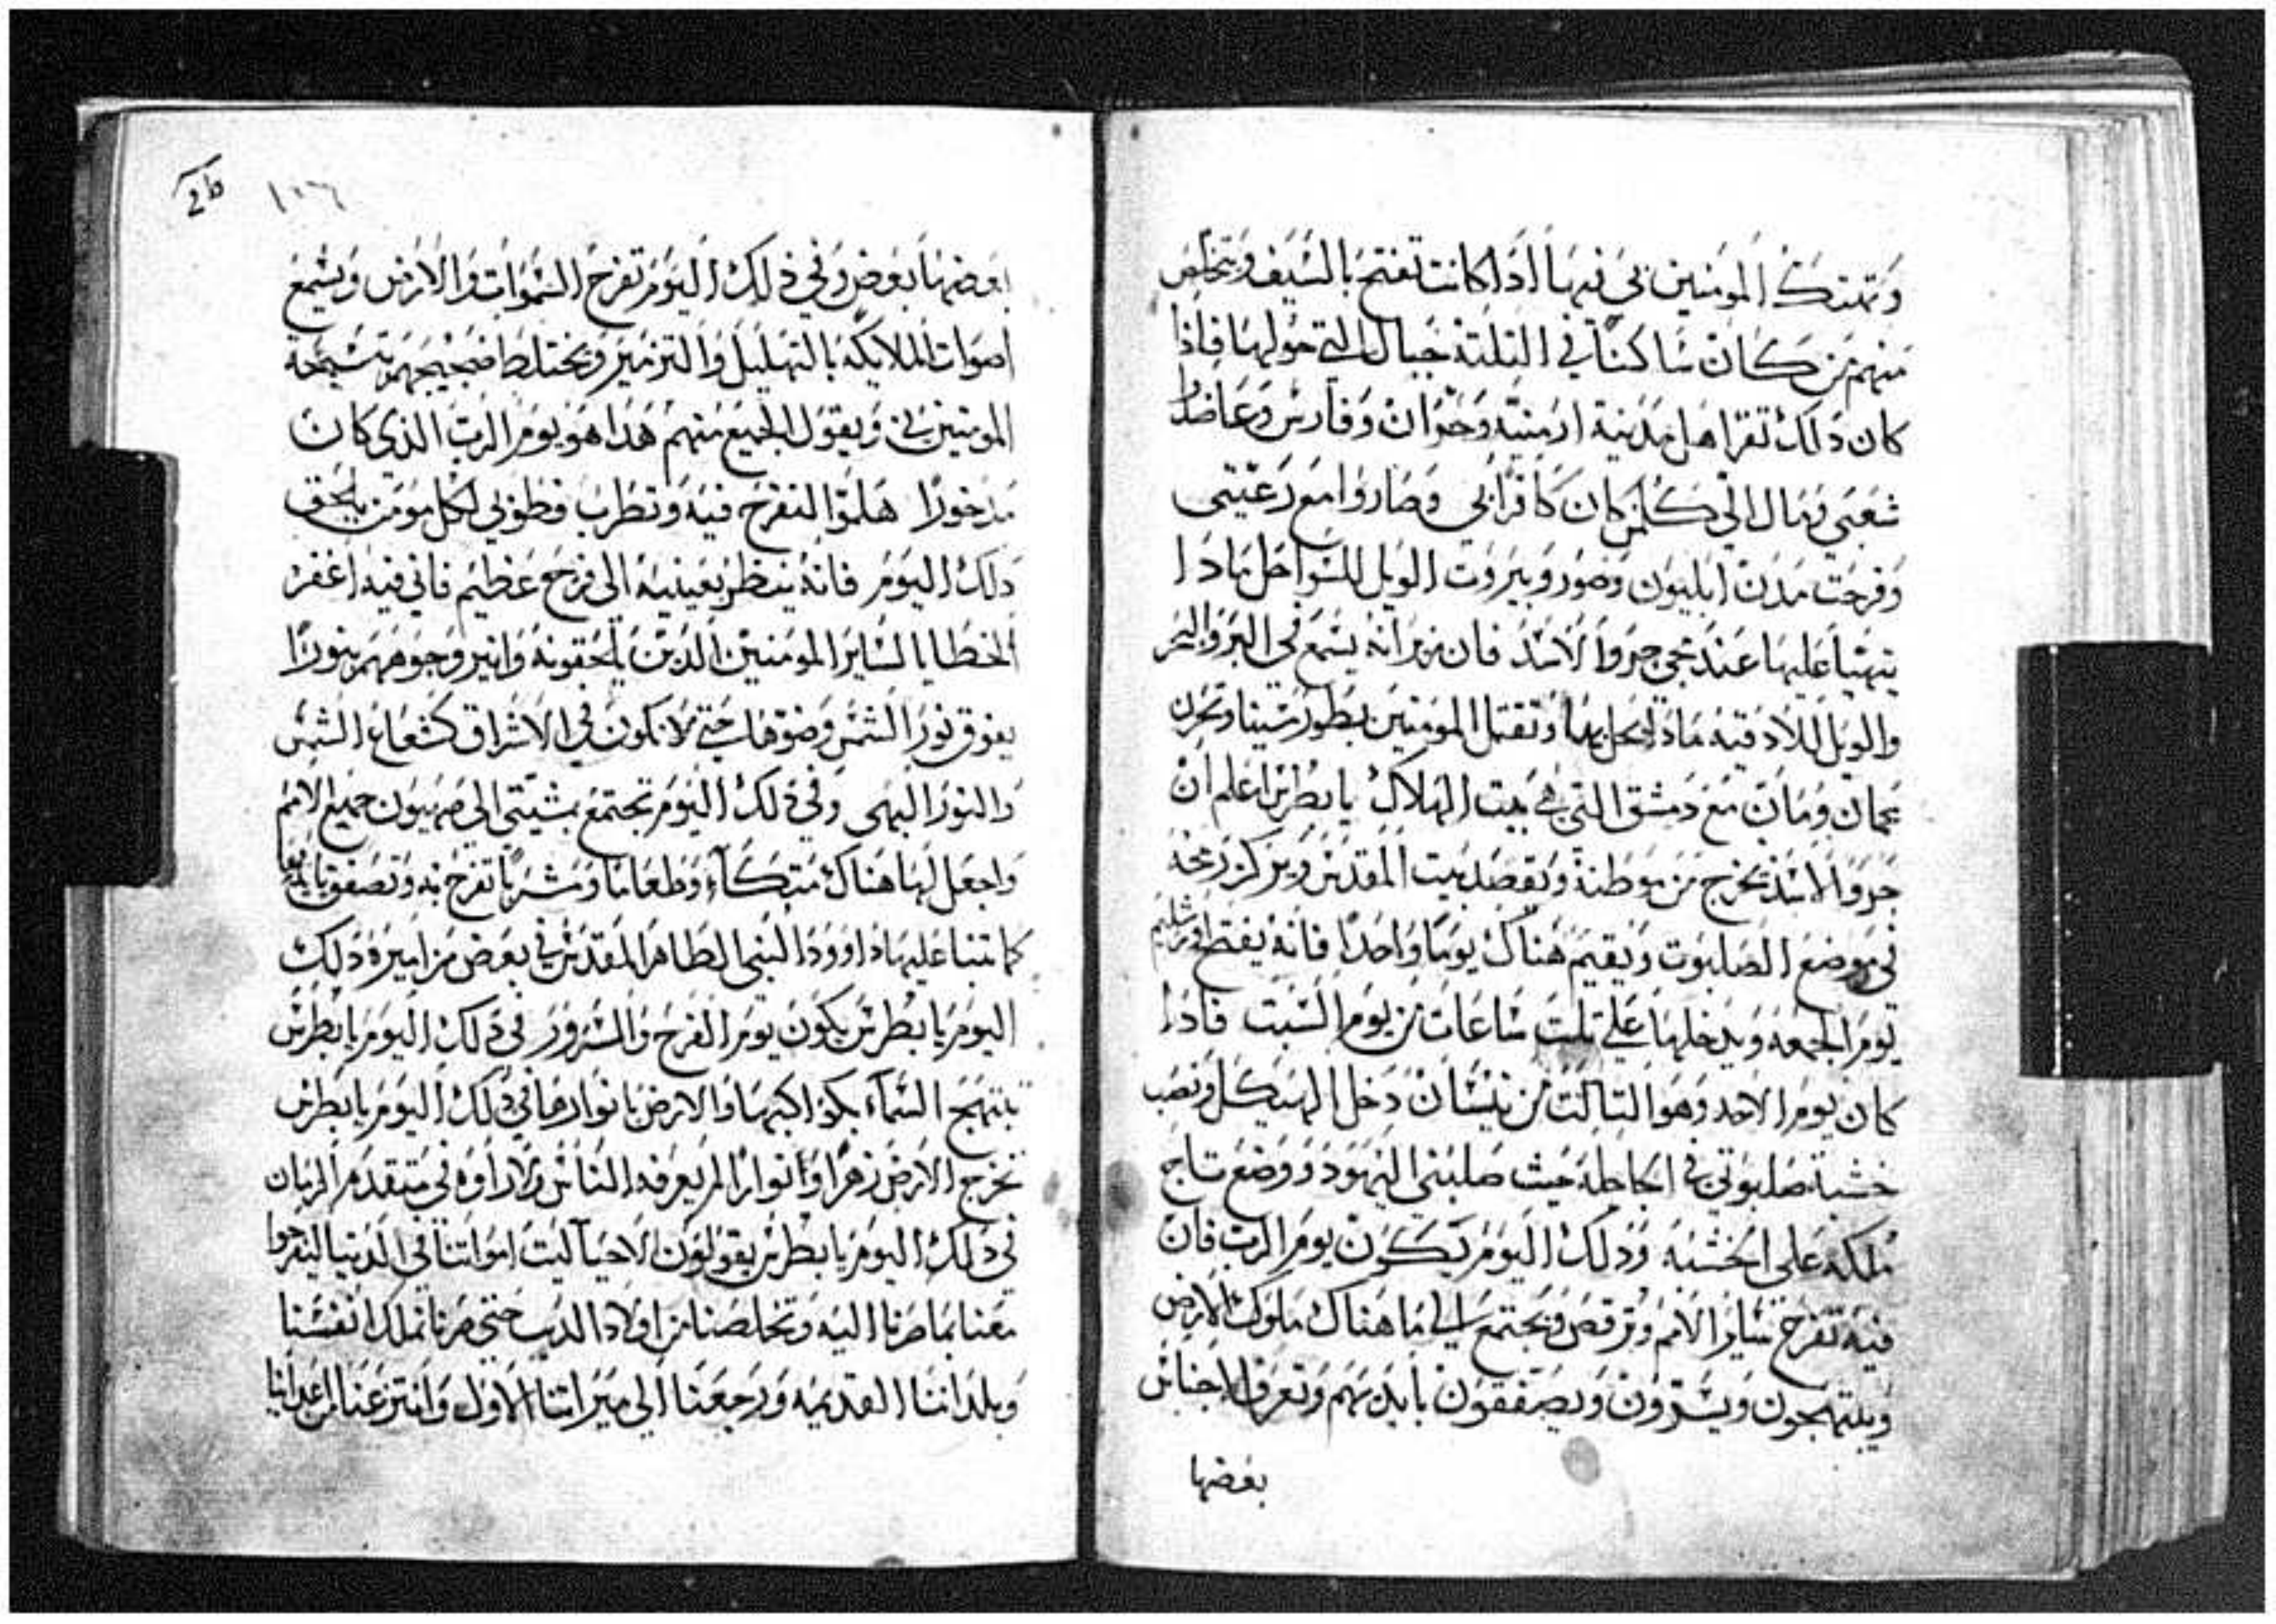 وتهتك المومنين بي فيها اذا كانت تفتح بالسيف ويتخلص
منهم من كان ساكناً في الثلثة جبال التي حولها فاذا
كان ذلك تقرا اهل مدينة ارمنيه وحوران وفارس وعاضدا
شعبي ومال الي كلمن كان كافراً بي وصاروا مع رعيتي
وفرحت مدن ابليون وصور وبيروت الويل للسواحل ماذا
يتهيا عليها عند مجي جروا الاسد فان زيرانه يسمع في البر والبحر
والويل للادقيه ماذا يحل بها وتقتل المومنين بطور سينا وتحزن
عمان ومان مع دمشق التي هي بيت الهلاك يا بطرس اعلم ان
جروا الاسد يخرج من موطنه ويقصد بيت المقدس ويركز رمحه
في موضع الصلبوت ويقيم هناك يوماً واحداً فانه يفتح اورشليم
يوم الجمعه ويدخلها على تلت ساعات من يوم السبت فاذا
كان يوم الاحد وهو التالت من نيسان دخل الهيكل ونصب
خشبة صلبوتي في الجاجلة حيث صلبني اليهود ووضع تاج
ملكه على الخشبه وذلك اليوم يكون يوم الرب فان
فيه تفرح ساير الامم وترقص ويجتمع هناك ملوك الارض
ويبتهجون ويسرون ويصفقون بايديهم وتعرف الاجناس
بعضها
2b
١٠٦
بعضها بعض وفي ذلك اليوم تفرح السموات والارض ويسمع
اصوات الملايكه بالتهليل والترنيم ويختلط ضجيجهم بتسبحة
المومنين بي ويقول الجميع منهم هذا هو يوم الرب الذي كان
مدخوراً هلموا لنفرح فيه ونطرب فطوبي لكل مومن يلحق
ذلك اليوم فانه ينظر بعينيه الى فرح عظيم فاني فيه اغفر
الخطايا لساير المومنين الذين يلحقونه وانير وجوههم بنوراً
يفوق نور الشمس وضوها حتى لا يكون في الاشراق كشعاع الشمس
والنور البهي وفي ذلك اليوم تجتمع بمشيتي الى صهيون جميع الامم
واجعل لها هناك متكاء وطعاماً ومشرباً تفرح به وتصفق بايديها
كما تنبا عليها داوود النبي الطاهر المقدس في بعض مزاميره ذلك
اليوم يا بطرس يكون يوم الفرح والسرور في ذلك اليوم يا بطرس
تبتهج السماء بكواكبها والارض بانوارها في ذلك اليوم يا بطرس
تخرج الارض زهراً وانواراً لم يعرفه الناس ولا راوه في متقدم الزمان
في ذلك اليوم يا بطرس يقولون الاحيا ليت امواتنا في الدنيا ليفرحوا
معنا بما صرنا اليه وتخلصنا من اولاد الديب حتى صرنا نملك انفسنا
وبلداننا القديمه ورجعنا الى ميراثنا الاول وانتزعنا من اعداينا